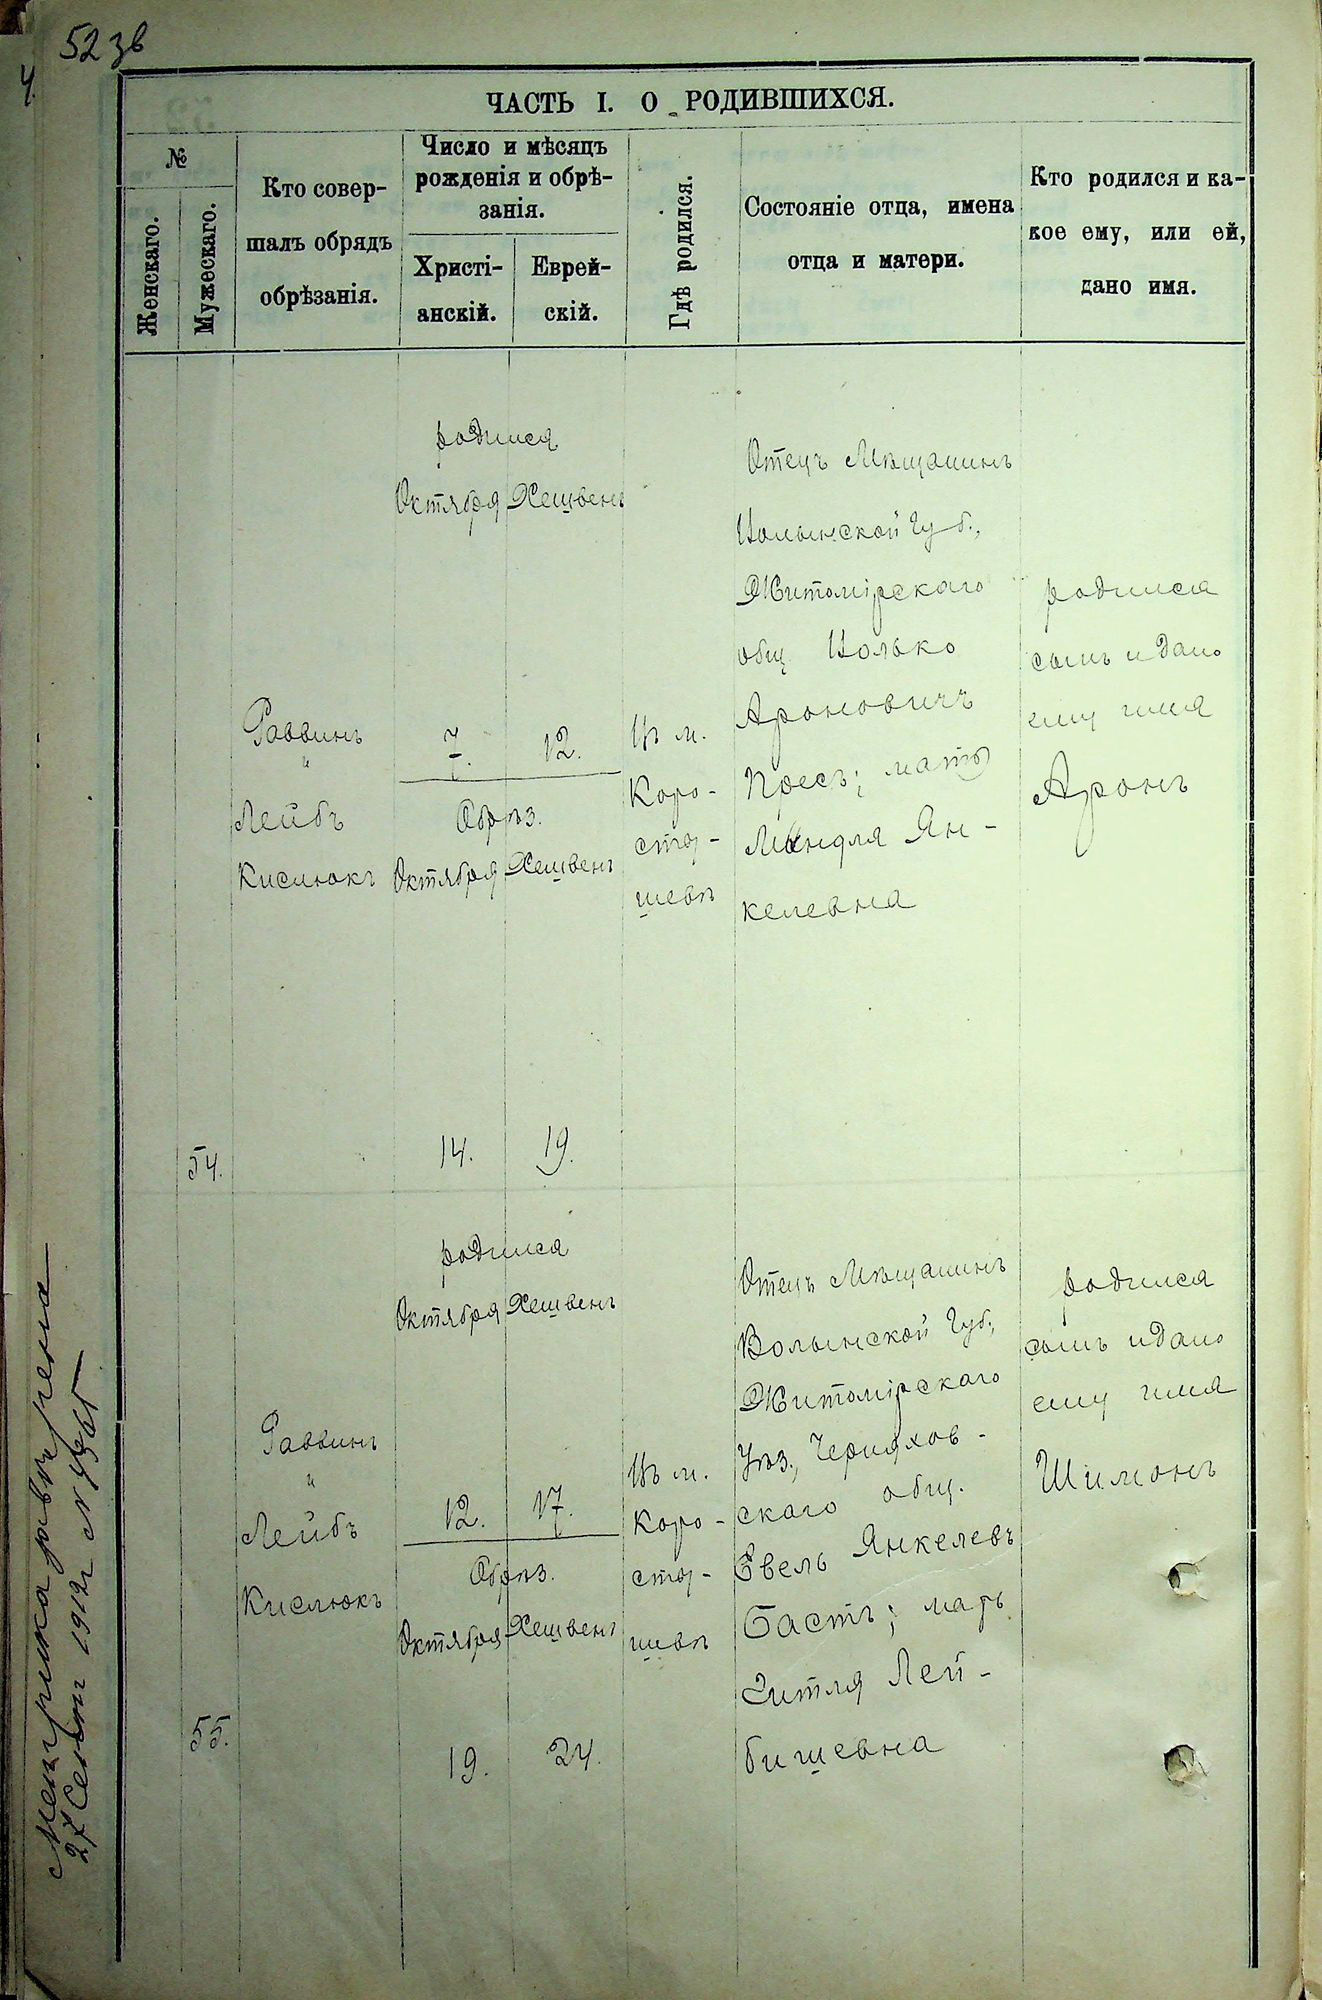 52 зв
ЧАСТЬ I. О РОДИВШИХСЯ.
№
Женскаго.
Мужескаго.
Кто совер-
шалъ обрядъ
обрѣзанія.
Число и мѣсяцъ
рожденія и обрѣ-
занія.
Христі-
анскій.
Еврей-
скій.
Гдѣ родился.
Состояніе отца, имена
отца и матери.
Кто родился и ка-
кое ему, или ей,
дано имя.
54.
Раввинъ
"
Лейбъ
Кислюкъ
родился
Октября Хешвенъ
7. 12.
Обрѣз.
Октября Хешвенъ
14. 19.
Въ м.
Коро-
сты-
шевѣ
Отецъ Мѣщанинъ
Волынской Губ.,
Житомірскаго
общ. Волько
Ароновичъ
Пресъ; мать
Миндля Ян-
келевна
родился
сынъ и дано
ему имя
Аронъ
55.
Раввинъ
"
Лейбъ
Кислюкъ
родился
Октября Хешвенъ
12. 17.
Обрѣз.
Октября Хешвенъ
19. 24.
Въ м.
Коро-
сты-
шевѣ
Отецъ Мѣщанинъ
Волынской Губ.,
Житомірскаго
Уѣз., Черняхов-
скаго общ.
Евель Янкелевъ
Бастъ; мать
Гитля Лей-
бишевна
родился
сынъ и дано
ему имя
Шимонъ
Метрика
27 Сент 1912г №